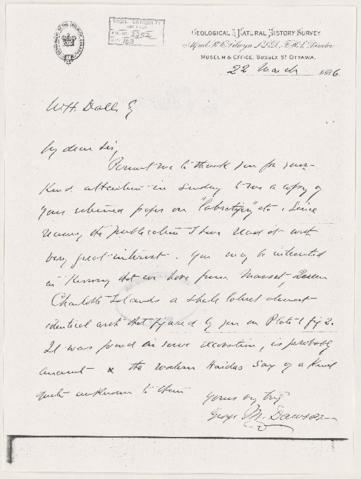 GEOLOGICAL & NATURAL HISTORY SURVEY
Alfred R. C. Selwyn L.L.D., F.R.S., Director
MUSEUM & OFFICE, SUSSEX ST OTTAWA.
22 March 1886.
W H Dall Esq
My dear Sir,
Permit me to thank you for your
kind attention in sending to me a copy of
your paper on "Labretifery" etc. Since
the publication I have read it with
very great interest. You may be interested
in knowing that we have from Masset, Queen
Charlotte Islands a labret almost
identical with that figured by you on Plate I fig 2.
It was found in some excavation, is probably
ancient & the modern Haidas say of a kind
quite unknown to them
Yours very truly
George M. Dawson